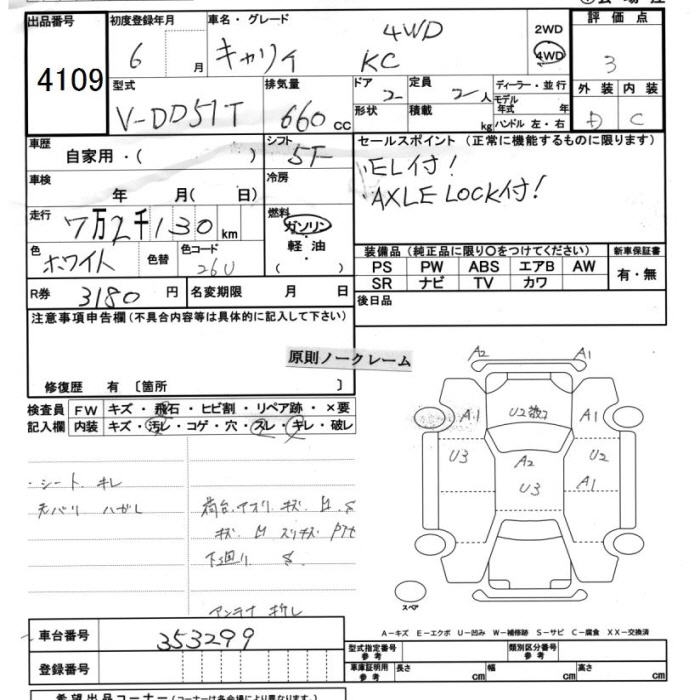 出品番号 4109
初度登録年月 6 月
車名・グレード キャリイ 4WD KC
2WD
4WD
評価点 3
外装 内装
D C
型式 V-DD51T
排気量 660 cc
ドア 2
定員 2人
ディーラー・並行
形状
積載 kg
モデル年式 年
ハンドル 左・右
車歴 自家用・( )
シフト 5F
セールスポイント (正常に機能するものに限ります)
EL付!
AXLE LOCK付!
車検 年 月( 日)
冷房
走行 7万2千130 km
燃料 ガソリン
軽油
( )
色 ホワイト 色替 色コード 26U
装備品(純正品に限り○をつけてください)
新車保証書
PS PW ABS エアB AW
SR ナビ TV カワ
有・無
R券 3180 円 名変期限 月 日
後日品
注意事項申告欄(不具合内容等は具体的に記入して下さい)
原則ノークレーム
修復歴 有 〔箇所 〕
検査員 FW キズ・飛石・ヒビ割・リペア跡・×要
記入欄 内装 キズ・汚レ・コゲ・穴・スレ・キレ・破レ
・シート キレ
天バリ ハガレ
荷台
キズ
下廻り S
アンテナ
A2 A1
A1 U2 A1
U3 A2 U2
U3 A1
スペア
A-キズ E-エクボ U-凹み W-補修跡 S-サビ C-腐食 XX-交換済
車台番号 353299
登録番号
型式指定番号 参考
類別区分番号 参考
車庫証明用 参考 長さ cm 幅 cm 高さ cm
希望出品コーナー(コーナーは各会場により異なります。)